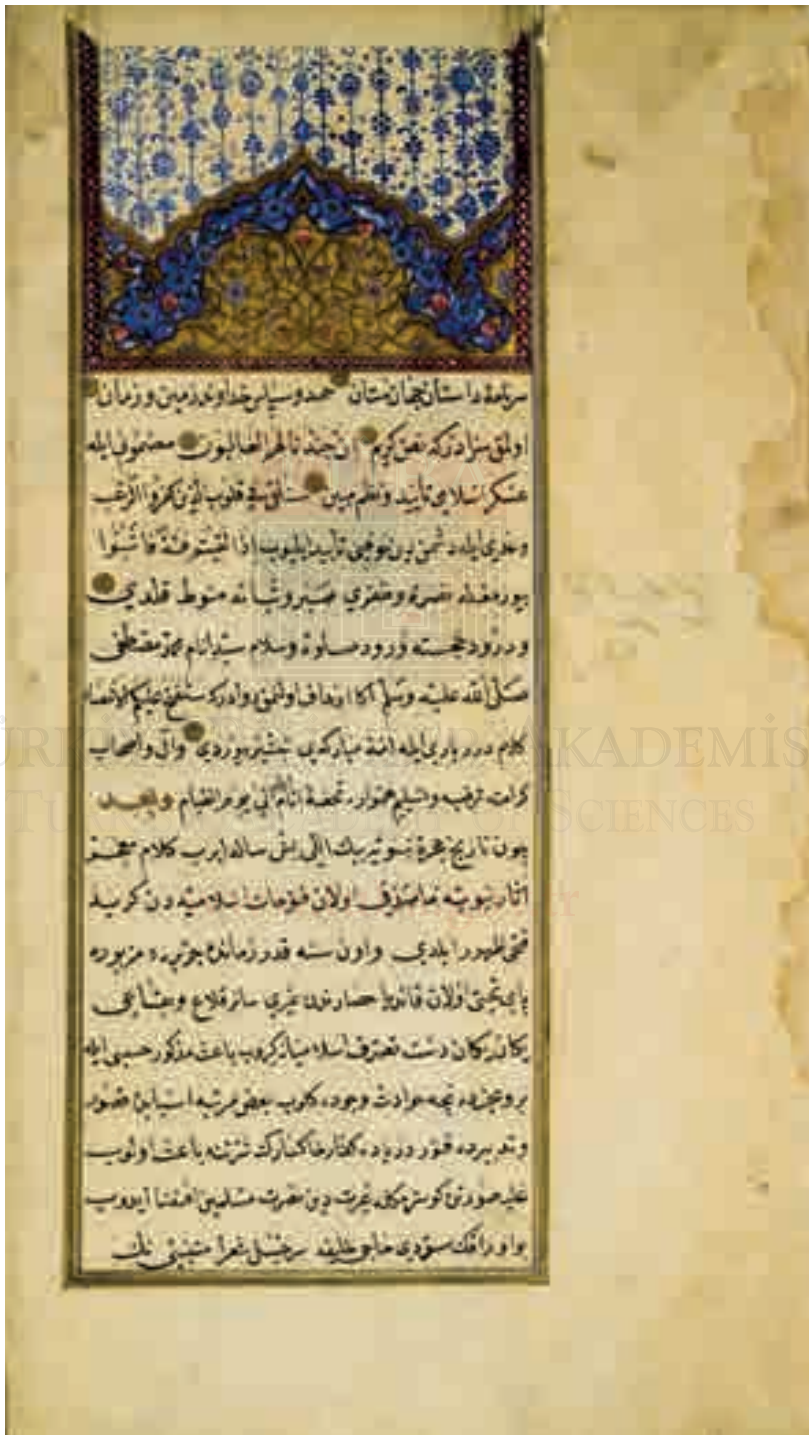 سرنامۀ داستان جهان ستان حمد و سپاس خداوند زمین و زمان
اولمق سزادر که نص کریم ان جندنا لهم الغالبون مضمونی ایله
عسکر اسلامی تأیید و نظم مبین سنلقی فی قلوب الذین کفروا الرعب
وعیدی ایله دشمن دین تأیید ایلیوب اذا لقیتم فئة فاثبتوا
بیورمغله نصرة و ظفری صبر و ثباته منوط قلدی
و درود خجسته ورود صلوة و سلام سید انام محمد مصطفی
صلی الله علیه وسلم اکا اهداف اولنمق روادر که ستفتح علیکم الامصار
کلام درر باری ایله امت مبارکه یی تبشیر بیوردی و آل و اصحاب
کرامه ترضیه و تسلیم هموار تحفۀ انام الی یوم القیام وبعد
چون تاریخ هجرة نبویه بیك اللی بش سالنه ایرب کلام معجز
آثار نبویه ماصدقی اولان فتوحات اسلامیه دن کرید
فتحی ظهور ایلدی و اون سنه قدر زمانده جزیره مزبوره
پای تختی اولان قاندیا حصارندن غیری سائر قلاع و بقاعی
یکان یکان دست تصرف اسلامیانه کیروب باعث مذکور حسبی ایله
بر و بحرده نچه حوادث وجوده کلوب بعض مرتبه اسبابی قصور
و تدبیرده فتور و ریاده کفار خاکسارك باعث اولوب
غلبه صورتن کوسترمکله غیرت دین نصرت مسلمین اقتضا ایدوب
بو اوراقك مسودی حاجی خلیفه سرخیل غزا متنبئ نك
TÜRK AKADEMİS
SCIENCES